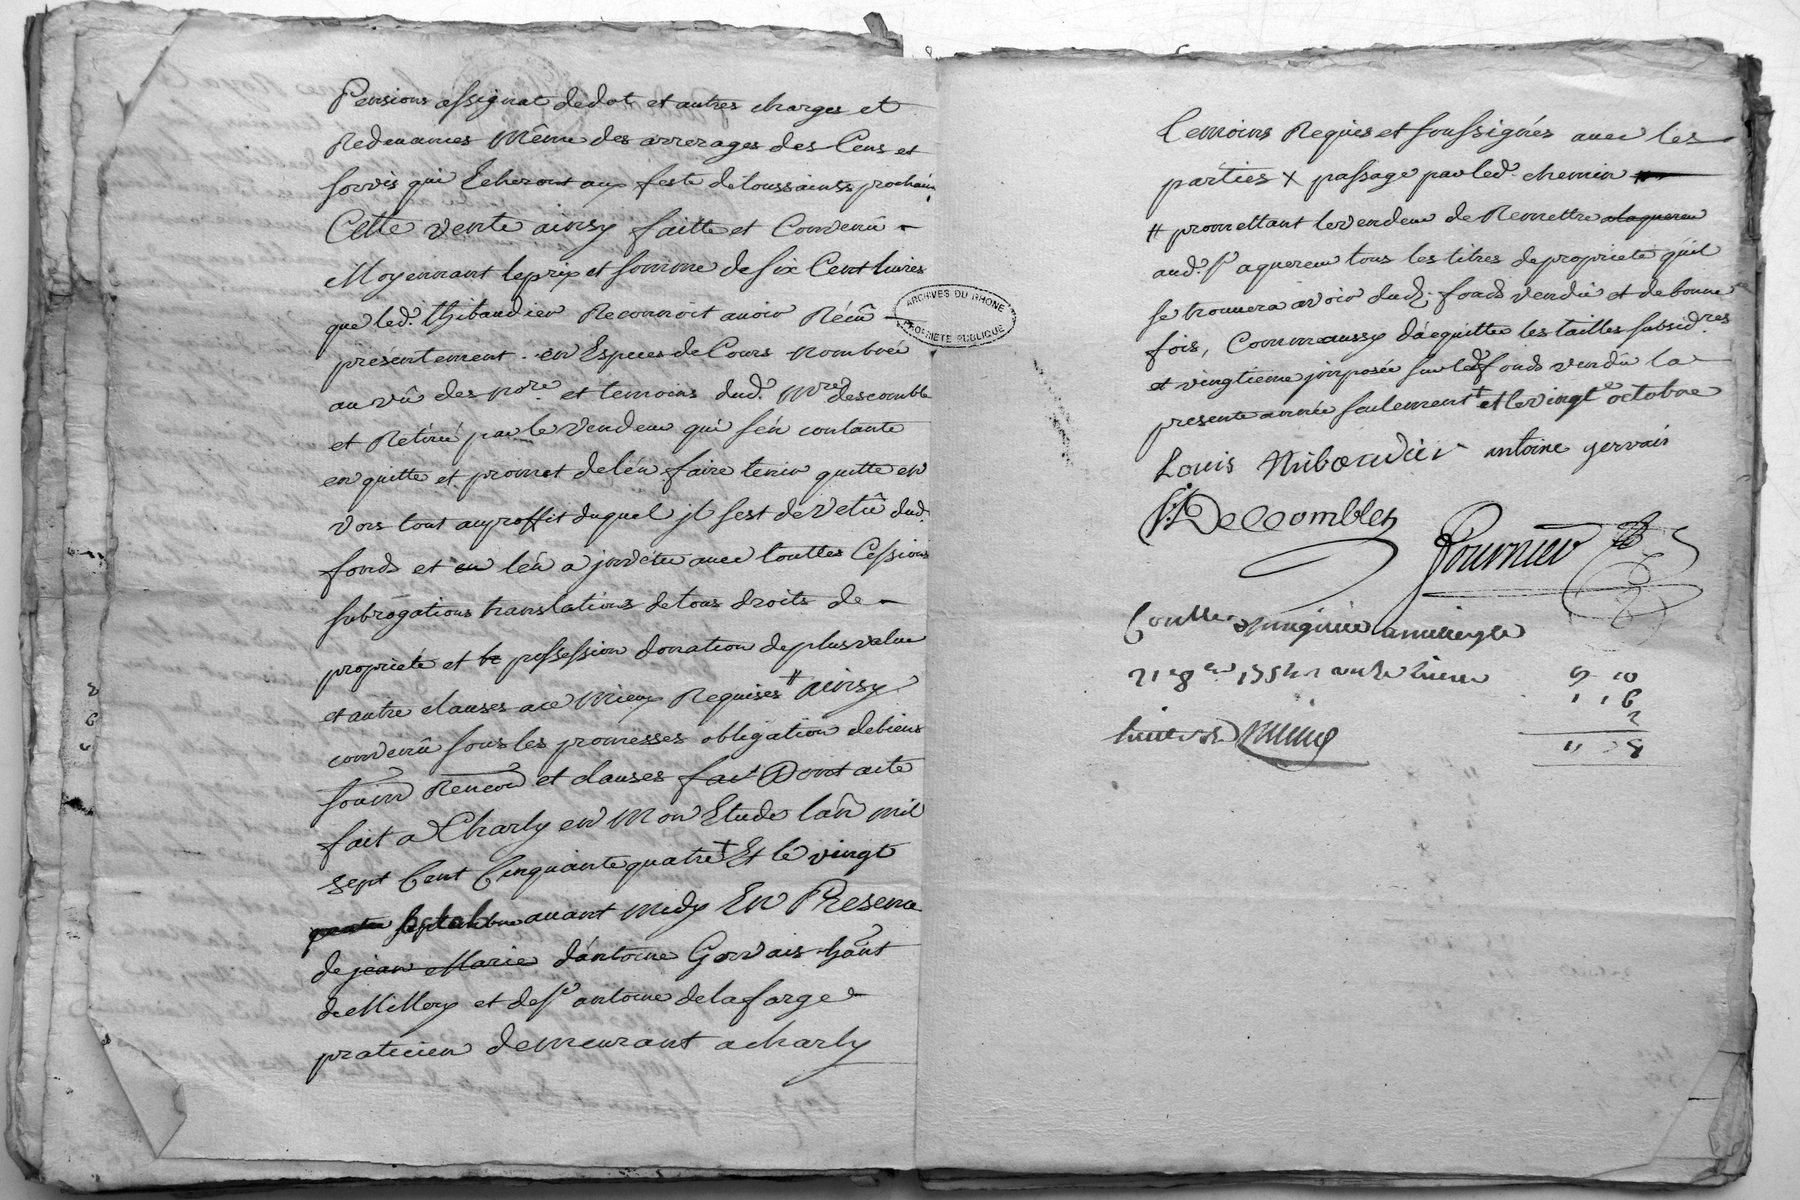 Pensions assignat de dot et autres charges et
Redevances Même des arrerages des Cens et
servis qui Echeront aux feste de toussaints prochain
Cette vente ainsy faitte et Convenû
Moyennant le prix et somme de six Cent livres
que led. thibaudier Reconnoit avoir Réçû
présentement en Especes de Cours nombrée
au vû des nore. et temoins dud. Mre descombles
et Retirée par le Vendeur qui s'én contante
en quitte et promet de l'én faire tenir quitte en
vers tout au proffit duquel jl s'est devetû dud.
fonds et l'én a jnvétu avec touttes Cessions
subrogations translations de tous droits de
propriété et possession donation de plus value
et autre clauses a ce Mieux Requises # ainsy
convenû sous les promesses obligation de biens
soûm Renon et clauses fait Dont acte
fait a Charly en Mon Etude l'ân mil
sept Cent Cinquante quatre + Et le vingt
quatre septembre avant midy En Presence
de jean Marie d'ántoine Gervais hânt
de Millery et de sr antoine delaforge
praticien demeurant a charly
temoins Requis et soussignés avec les
parties X passage par led. chemin
# promettant le vendeur de Remettre alaquereur
aud. sr aquereur tous les titres de proprieté qu'il
se trouvera avoir dud. fonds vendû et de bonne
fois, Comme aussy d'acquitter les tailles subsidres
et vingtieme jmposée sur led fonds vendû la
presente année seulement + et le vingt octobre
Louis thibaudier antoine gervais
Descombles
fournier
ARCHIVES DU RHONE
PROPRIETE PUBLIQUE